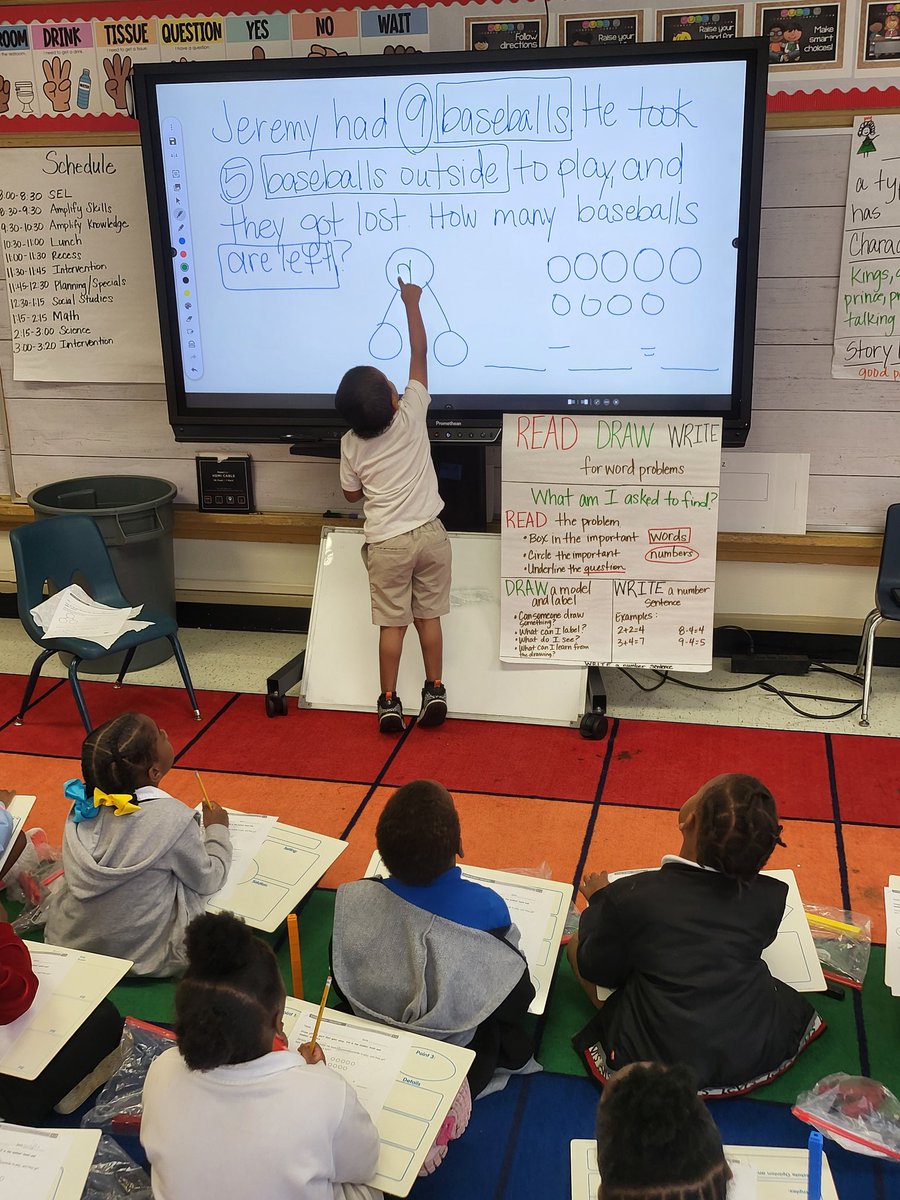 ROOM
DRINK
I need to get a drink.
TISSUE
I need to get a tissue.
QUESTION
I have a question.
YES
NO
WAIT
Follow
directions
Raise your
Raise your
hand for
Make
smart
choices!
Schedule
8:00-8:30 SEL
8:30-9:30 Amplify Skills
9:30-10:30 Amplify Knowledge
10:30-11:00 Lunch
11:00-11:30 Recess
11:30-11:45 Intervention
11:45-12:30 Planning/Specials
12:30-1:15 Social Studies
1:15-2:15 Math
2:15-3:00 Science
3:00-3:20 Intervention
Jeremy had 9 baseballs He took
5 baseballs outside to play, and
they got lost. How many baseballs
are left?
Promethean
a ty
has
Charac
Kings,
prince, pr
talking
Story
good p
READ DRAW WRITE
for word problems
What am I asked to find?
READ the problem
• Box in the important words
• Circle the important numbers
• Underline the question
DRAW a model
and label
• Can someone draw
something?
• What can I label?
• What do I see?
• What can I learn from
the drawing?
WRITE a number
sentence
Examples:
2+2=4 8-4=4
3+4=7 9-4=5
WRITE a number sentence
HDMI CABLE
Setting
Solution
Point 3:
Details